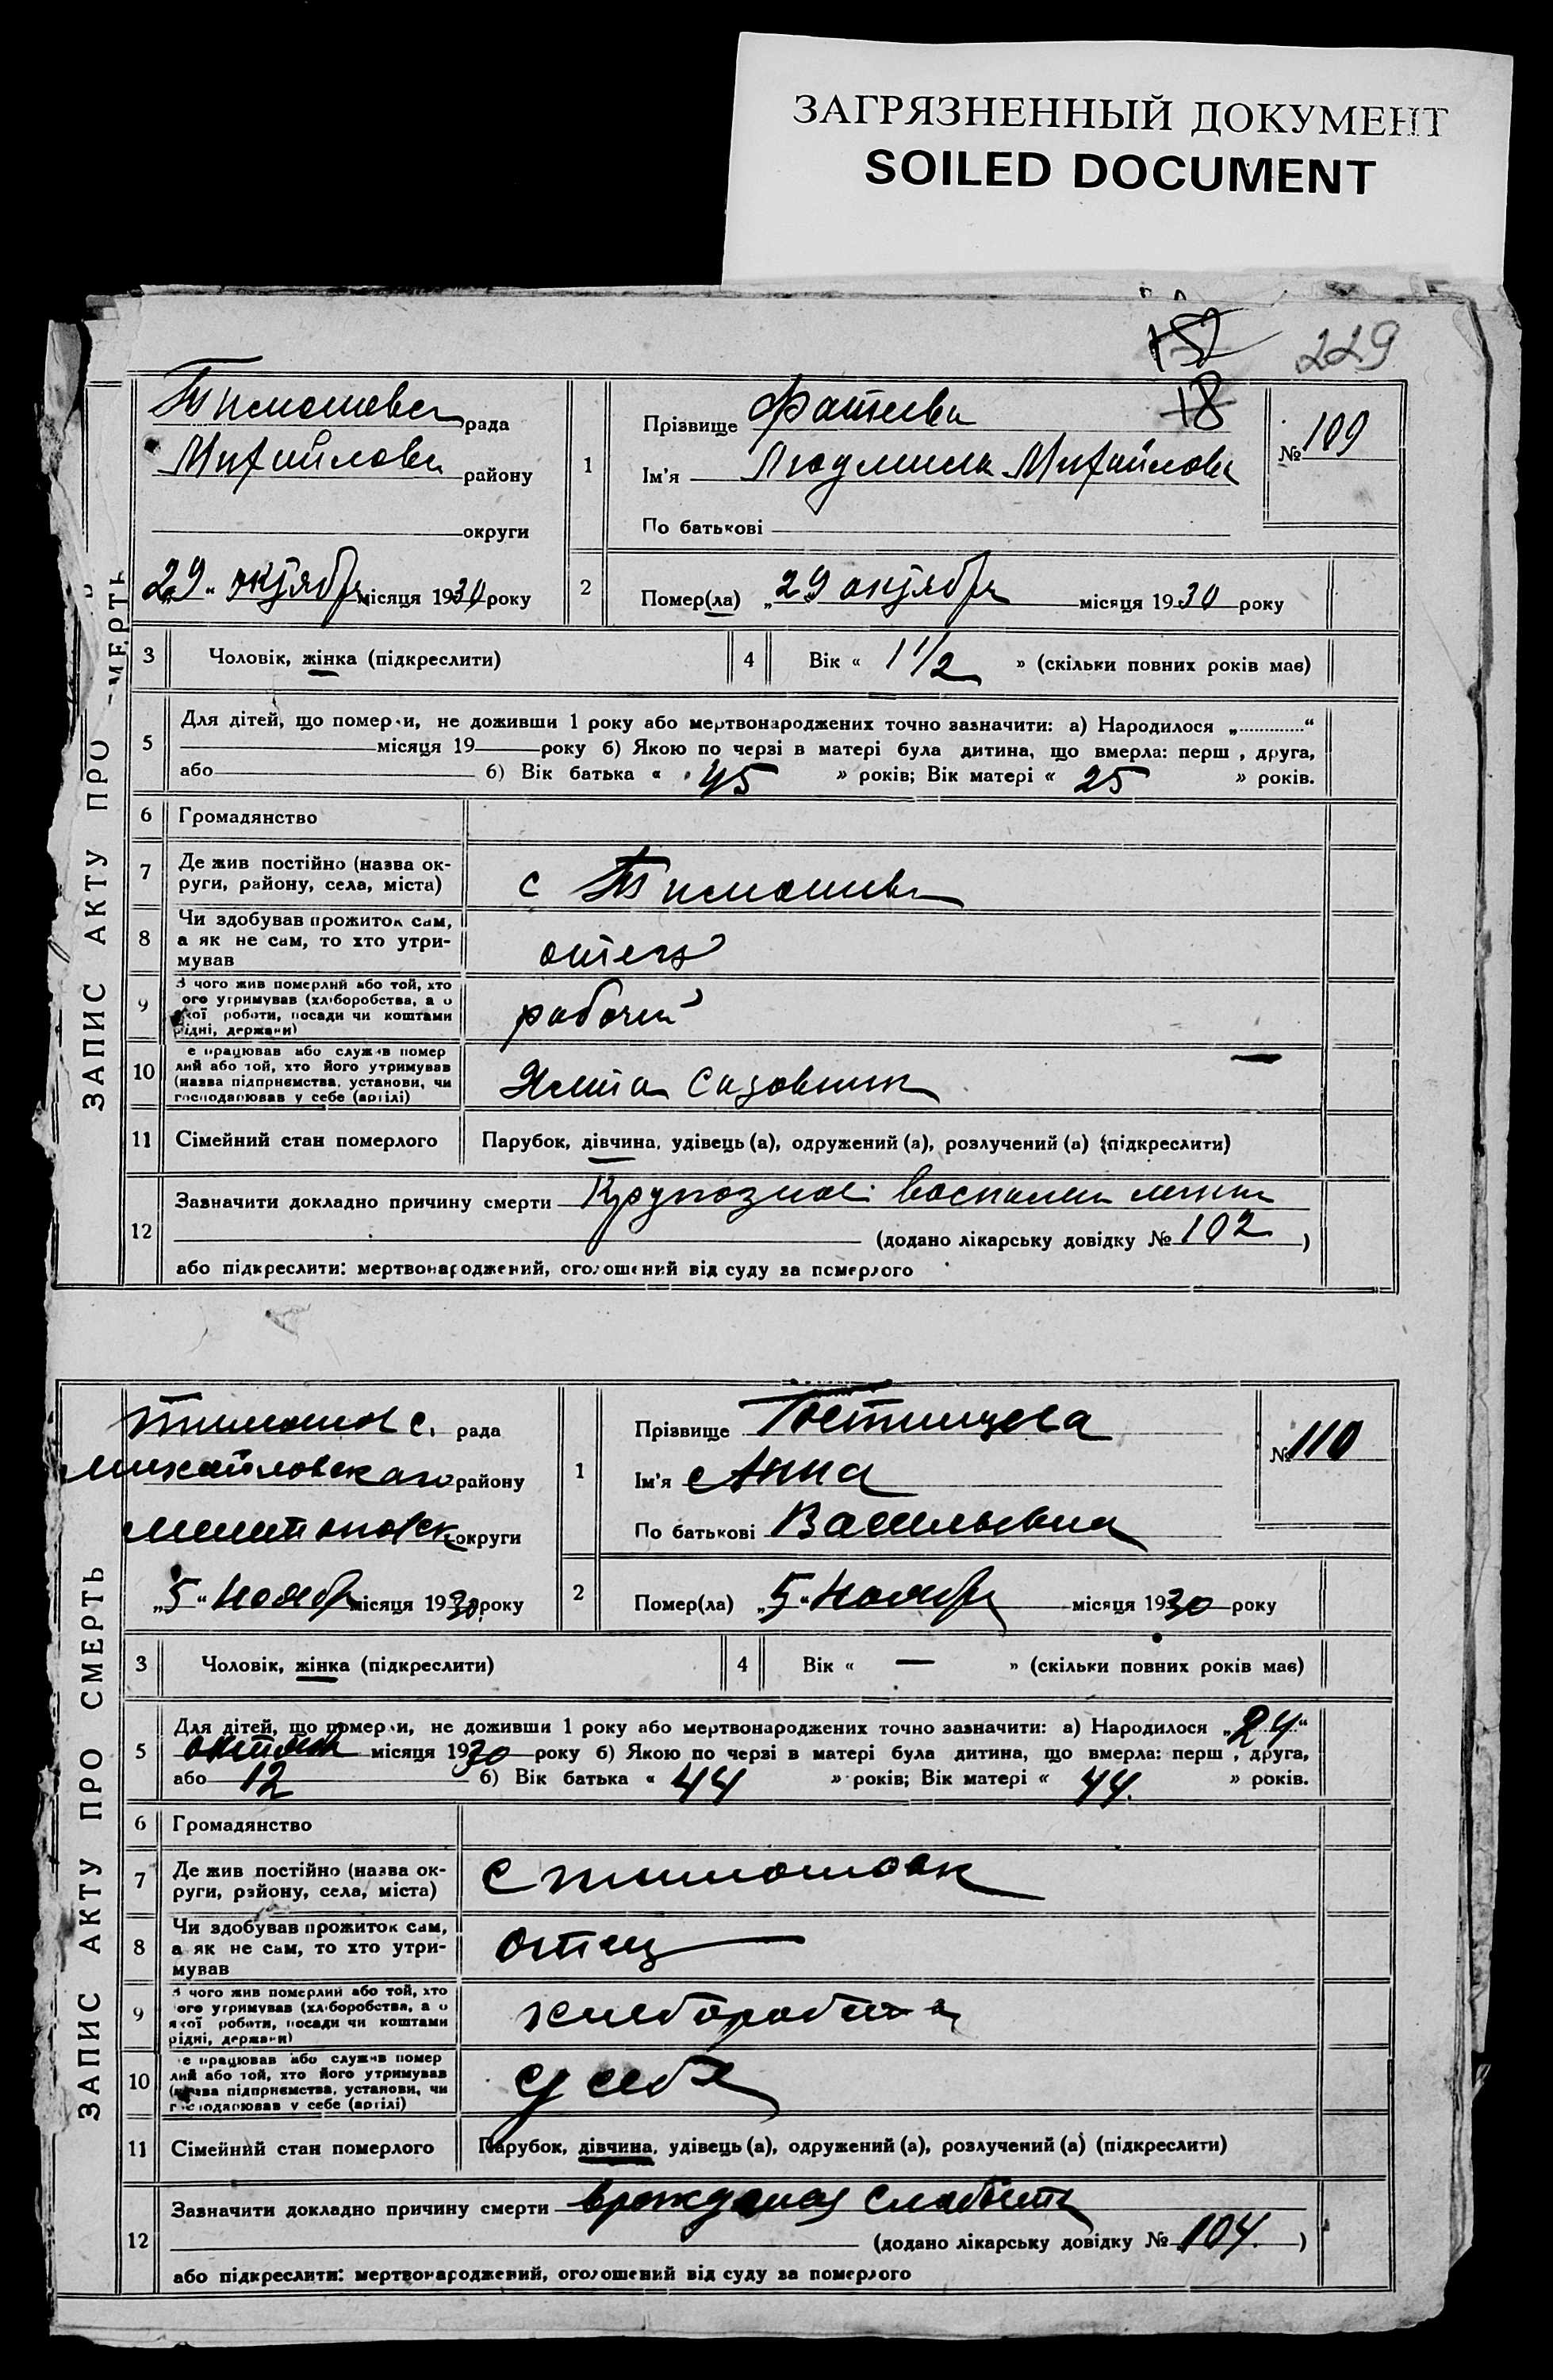 ЗАГРЯЗНЕННЫЙ ДОКУМЕНТ
SOILED DOCUMENT
152
229
18
ЗАПИС АКТУ ПРО СМЕРТЬ
рада
району
округи
„29“ октября місяця 1930 року
1
Прізвище
Ім'я Людмила Михайловн
По батькові
№ 109
2
Помер(ла) „29 октября місяця 1930 року
3 Чоловік, жінка (підкреслити)
4 Вік « 1 1/2 » (скільки повних років має)
5 Для дітей, що померли, не доживши 1 року або мертвонароджених точно зазначити: а) Народилося „..............“
місяця 19 року б) Якою по черзі в матері була дитина, що вмерла: перш , друга,
або б) Вік батька « 45 » років; Вік матері « 25 » років.
6 Громадянство
7 Де жив постійно (назва ок-
руги, району, села, міста)
с
8 Чи здобував прожиток сам,
а як не сам, то хто утри-
мував
отец
9 З чого жив померлий або той, хто
ого утримував (хліборобства, а о
якої роботи, посади чи коштами
рідні, держави)
рабочий
10 е працював або служив помер
лий або той, хто його утримував
(назва підприємства, установи, чи
господарював у себе (артілі)
Садовник
11 Сімейний стан померлого Парубок, дівчина, удівець (а), одружений (а), розлучений (а) (підкреслити)
12 Зазначити докладно причину смерти Крупозное воспален легких
(додано лікарську довідку № 102 )
або підкреслити: мертвонароджений, оголошений від суду за померлого
ЗАПИС АКТУ ПРО СМЕРТЬ
Тимошов с. рада
Михайловского району
округи
„5“ Ноября місяця 1930 року
1
Прізвище Гостищева
Ім'я Анна
По батькові Васильевна
№ 110
2
Помер(ла) „5“ Ноября місяця 1930 року
3 Чоловік, жінка (підкреслити)
4 Вік « — » (скільки повних років має)
5 Для дітей, що померли, не доживши 1 року або мертвонароджених точно зазначити: а) Народилося „24“
октября місяця 1930 року б) Якою по черзі в матері була дитина, що вмерла: перш , друга,
або 12 б) Вік батька « 44 » років; Вік матері « 44. » років.
6 Громадянство
7 Де жив постійно (назва ок-
руги, району, села, міста)
с Тимошовк
8 Чи здобував прожиток сам,
а як не сам, то хто утри-
мував
отец
9 З чого жив померлий або той, хто
ого утримував (хліборобства, а о
якої роботи, посади чи коштами
рідні, держави)
10 е працював або служив помер
лий або той, хто його утримував
(назва підприємства, установи, чи
господарював у себе (артілі)
у себе
11 Сімейний стан померлого Парубок, дівчина, удівець (а), одружений (а), розлучений (а) (підкреслити)
12 Зазначити докладно причину смерти слабость
(додано лікарську довідку № 104. )
або підкреслити: мертвонароджений, оголошений від суду за померлого